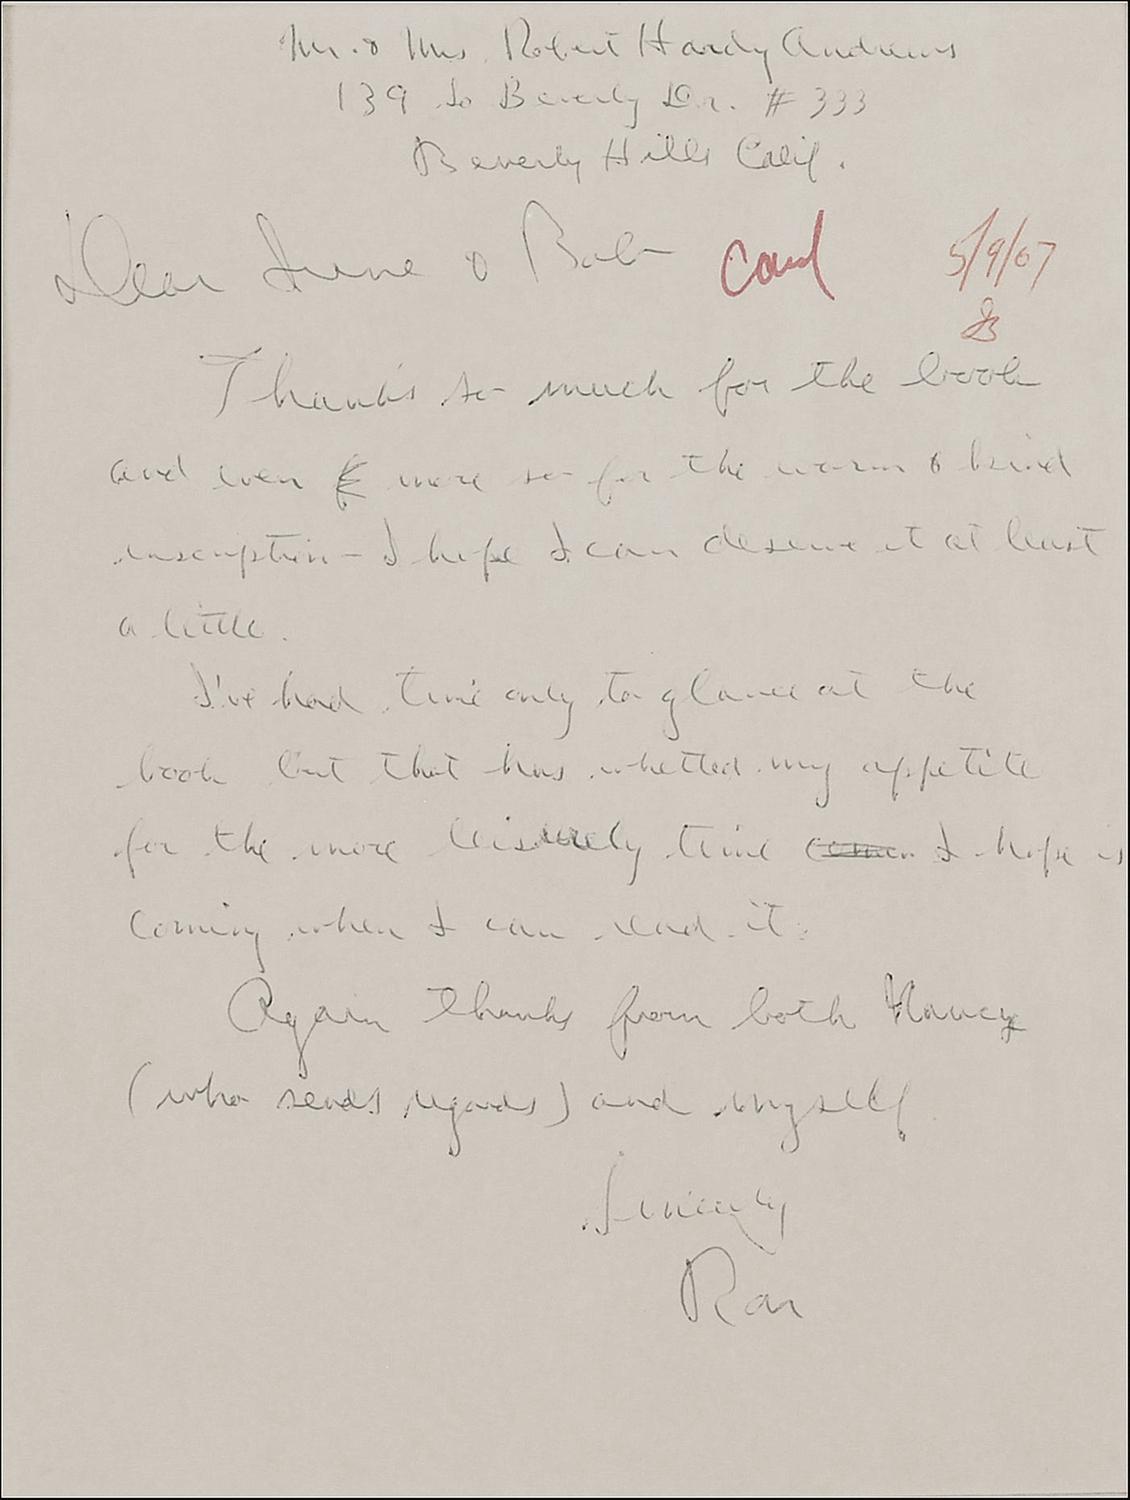 Mr. & Mrs. Robert Hardy Andrews
139 So Beverly Dr. # 333
Beverly Hills Calif.
Dear Irene & Bob
card
5/9/67
Thanks so much for the book
and even more so for the warm & kind
inscription – I hope I can deserve it at least
a little.
I've had time only to glance at the
book but that has whetted my appetite
for the more leisurely time I hope is
coming when I can read it.
Again thanks from both Nancy
(who sends regards) and myself.
Sincerely
Ron